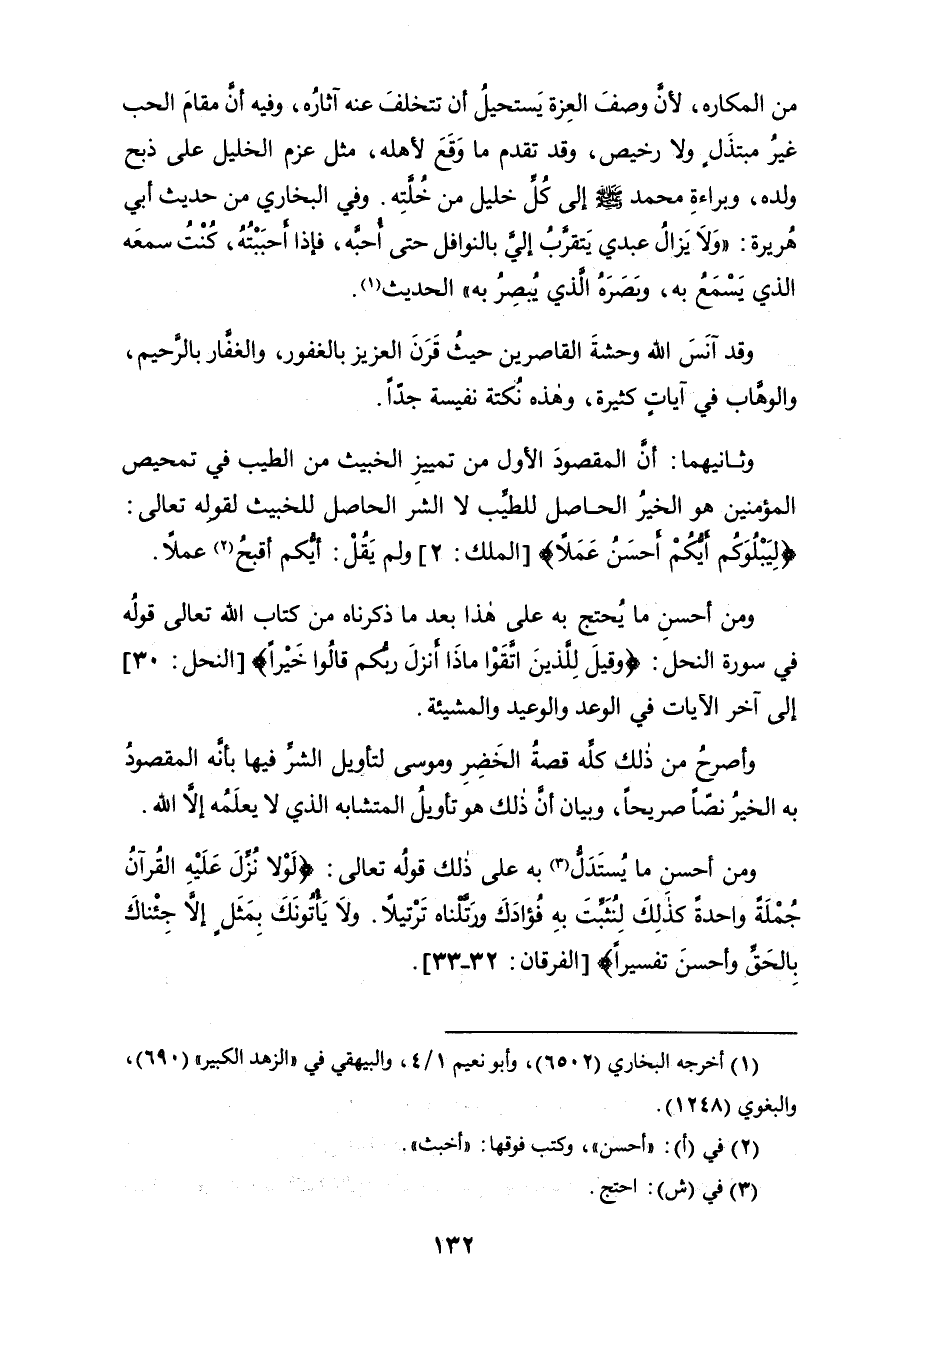 من المكاره، لأنَّ وصفَ العِزة يَستحيلُ أن تتخلفَ عنه آثارُه، وفيه أنَّ مقامَ الحب
غيرُ مبتذَلٍ ولا رخيص، وقد تقدم ما وَقَعَ لأهله، مثل عزم الخليل على ذبح
ولده، وبراءةِ محمد ﷺ إلى كُلِّ خليل من خُلَّتِه. وفي البخاري من حديث أبي
هُريرة: «وَلَا يَزالُ عبدي يَتقرَّبُ إليَّ بالنوافل حتى أُحبَّه، فإذا أَحبَبْتُهُ، كُنْتُ سمعَه
الذي يَسْمَعُ به، وبَصَرَهُ الَّذي يُبصِرُ به» الحديث(١).
وقد آنَسَ الله وحشةَ القاصرين حيثُ قَرَنَ العزيز بالغفور، والغفَّار بالرَّحيم،
والوهَّاب في آياتٍ كثيرة، وهٰذه نُكتة نفيسة جدّاً.
وثـانيهما: أنَّ المقصودَ الأول من تمييزِ الخبيث من الطيب في تمحيص
المؤمنين هو الخيرُ الحـاصل للطيِّب لا الشر الحاصل للخبيث لقولِه تعالى:
﴿لِيَبْلُوَكُم أَيُّكُمْ أَحسَنُ عَمَلاً﴾ [الملك: ٢] ولم يَقُلْ: أيُّكم أقبحُ(٢) عملاً.
ومن أحسنِ ما يُحتج به على هٰذا بعد ما ذكرناه من كتاب الله تعالى قولُه
في سورة النحل: ﴿وقيلَ لِلَّذينَ اتَّقَوْا ماذَا أَنزلَ ربُّكم قالُوا خَيْراً﴾ [النحل: ٣٠]
إلى آخر الآيات في الوعد والوعيد والمشيئة.
وأصرحُ من ذٰلك كلِّه قصةُ الخَضِرِ وموسى لتأويل الشرِّ فيها بأنَّه المقصودُ
به الخيرُ نصّاً صريحاً، وبيان أنَّ ذٰلك هو تأويلُ المتشابه الذي لا يعلَمُه إلَّا الله.
ومن أحسن ما يُستَدَلُّ(٣) به على ذٰلك قولُه تعالى: ﴿لَوْلا نُزِّلَ عَلَيْهِ القُرآنُ
جُمْلَةً واحدةً كذٰلِكَ لِنُثَبِّتَ بهِ فُؤادَكَ ورَتَّلْناه تَرْتيلاً. ولا يَأْتُونَكَ بِمَثَلٍ إلَّا جِئْناكَ
بِالحَقِّ وأحسنَ تفسيراً﴾ [الفرقان: ٣٢ـ٣٣].
(١) أخرجه البخاري (٦٥٠٢)، وأبو نعيم ٤/١، والبيهقي في «الزهد الكبير» (٦٩٠)،
والبغوي (١٢٤٨).
(٢) في (أ): «أحسن»، وكتب فوقها: «أخبث».
(٣) في (ش): احتج.
١٣٢